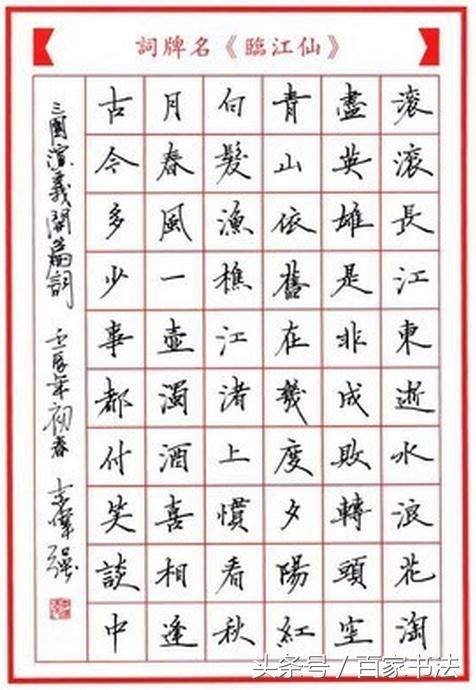 詞牌名《臨江仙》
滚滚長江東逝水浪花淘
盡英雄是非成敗轉頭空
青山依舊在幾度夕陽紅
白髮漁樵江渚上慣看秋
月春風一壺濁酒喜相逢
古今多少事都付笑談中
三國演義開篇詞 壬辰年初春
头条号 / 百家书法